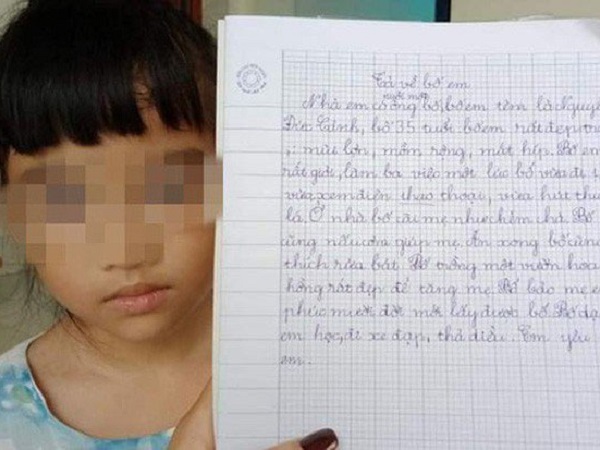 Tả về bố em
Nhà em có ông bố, bố em tên là Nguyễ
người mập
Đức Cảnh, bố 35 tuổi bố em rất đẹp tra
mũi lớn, mồm rộng, mắt híp. Bố em
rất giỏi, làm ba việc một lúc bố vừa đi
vừa xem điện thao thoại, vừa hút thu
lá. Ở nhà bố cãi mẹ như chém chả. Bố
cũng nấu cơm giúp mẹ. Ăn xong bố cũng
thích rửa bát. Bố trồng một vườn hoa
hồng rất đẹp để tăng mẹ. Bố bảo mẹ e
phúc mười đời mới lấy được bố. Bố dạ
em học, đi xe đạp, thả diều. Em yêu
em.